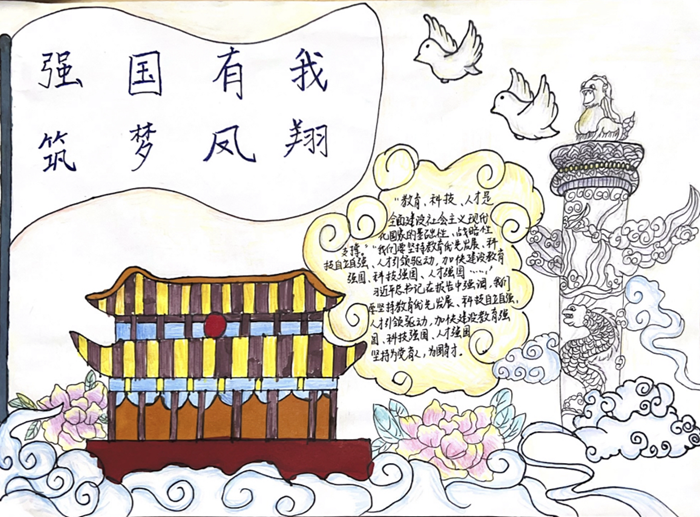 强国有我
筑梦凤翔
“教育、科技、人才是
全面建设社会主义现代
化国家的基础性、战略性
支撑。”“我们要坚持教育优先发展、科
技自立自强、人才引领驱动，加快建设教育
强国、科技强国、人才强国……”
习近平总书记在报告中强调，我们
要坚持教育优先发展、科技自立自强、
人才引领驱动，加快建设教育强
国、科技强国、人才强国
坚持为党育人，为国育才。